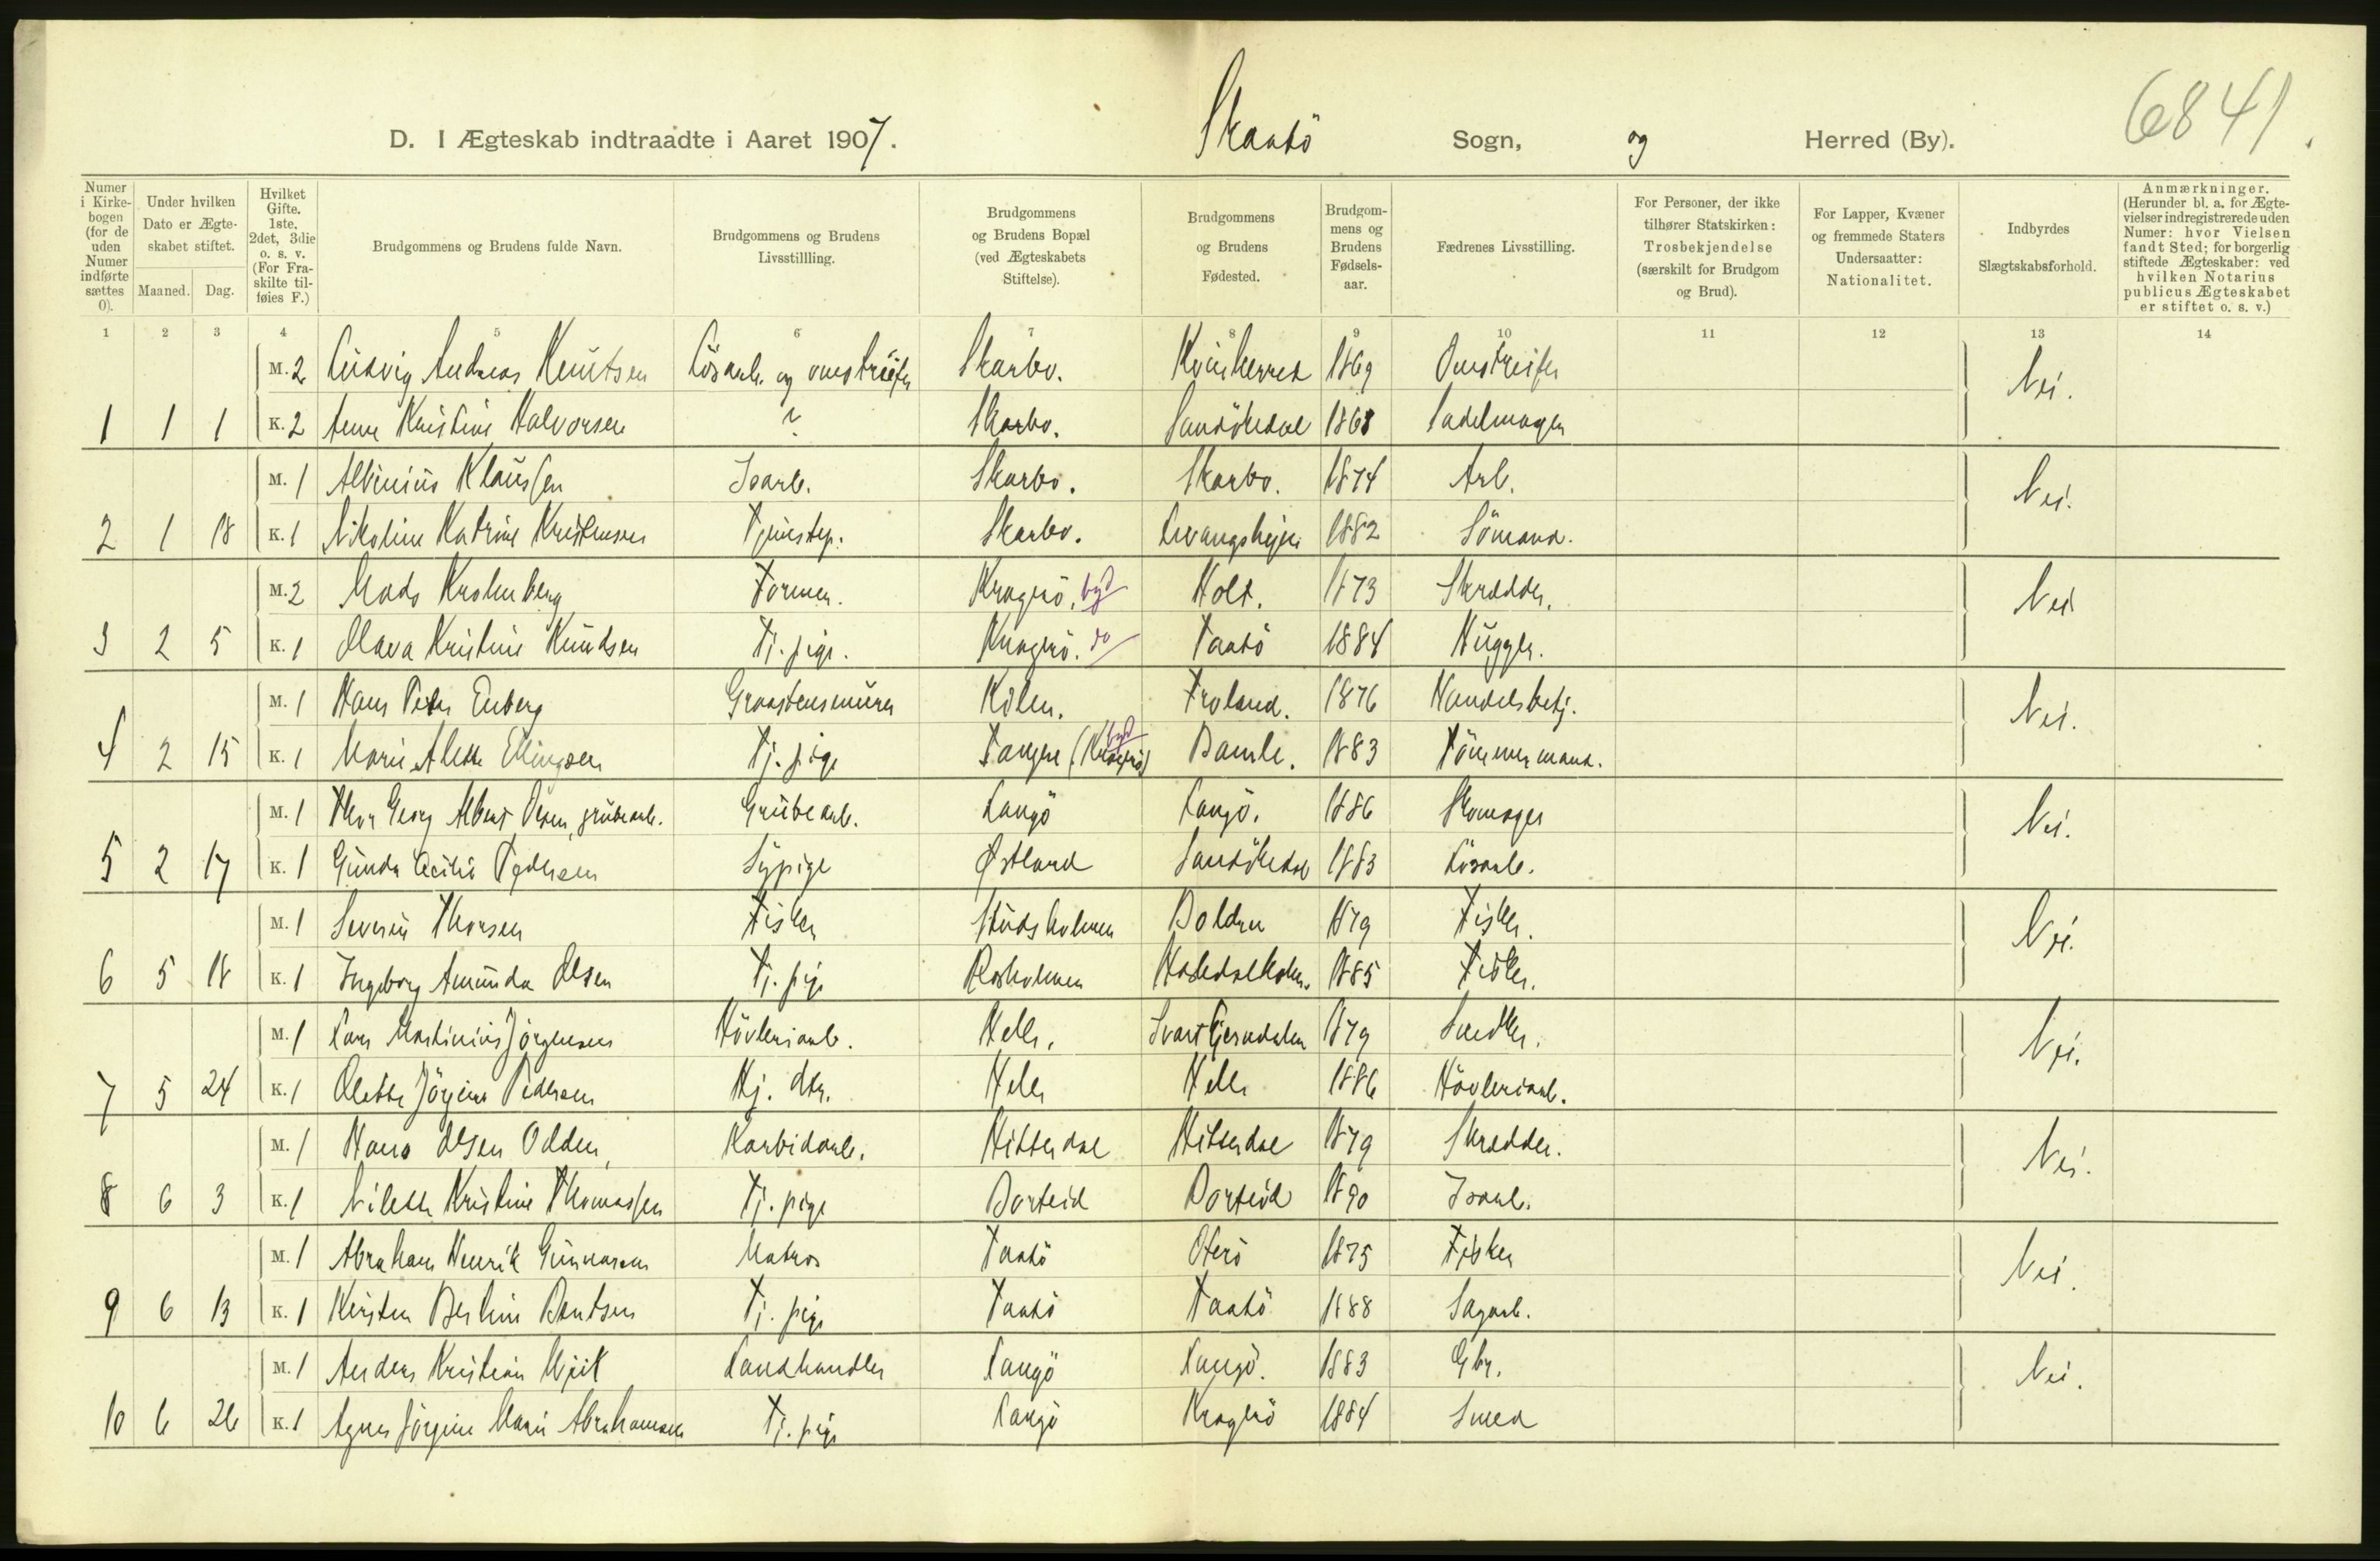 6841.
D. I Ægteskab indtraadte i Aaret 1907. Skaatö Sogn, og Herred (By).
Numer i Kirkebogen (for de uden Numer indførte sættes 0).
Under hvilken Dato er Ægteskabet stiftet.
Maaned. Dag.
Hvilket Gifte. 1ste, 2det, 3die o. s. v. (For Fraskilte tilføies F.)
Brudgommens og Brudens fulde Navn.
Brudgommens og Brudens Livsstillling.
Brudgommens og Brudens Bopæl (ved Ægteskabets Stiftelse).
Brudgommens og Brudens Fødested.
Brudgommens og Brudens Fødselsaar.
Fædrenes Livsstilling.
For Personer, der ikke tilhører Statskirken: Trosbekjendelse (særskilt for Brudgom og Brud).
For Lapper, Kvæner og fremmede Staters Undersaatter: Nationalitet.
Indbyrdes Slægtskabsforhold.
Anmærkninger. (Herunder bl. a. for Ægtevielser indregistrerede uden Numer: hvor Vielsen fandt Sted; for borgerlig stiftede Ægteskaber: ved hvilken Notarius publicus Ægteskabet er stiftet o. s. v.)
1 2 3 4 5 6 7 8 9 10 11 12 13 14
M. 2 Ludvig Andreas Knutsen Lösarb. og omstreifer Skarbo. Kvinherred 1869 Omstreifer Nei.
1 1 1 K. 2 Anne Kristine Halvorsen ? Skarbo. Sandökedal 1868 Sadelmager
M. 1 Albinius Klaussen Isarb. Skarbo. Skarbo. 1874 Arb. Nei.
2 1 18 K. 1 Nikoline Katrine Kristensen Tjenstep. Skarbo. 1882 Sömand.
M. 2 Mads Former. Kragerö. byd Holt. 1873 Skrædder. Nei
3 2 5 K. 1 Olava Kristine Knudsen Tj. pige. Kragerö. do Taatö 1884 Hugger.
M. 1 Hans Peter Enberg Graastensmurer Kilen. Froland. 1876 Handelsbetj. Nei.
4 2 15 K. 1 Marie Alette Ellingsen Tj. pige Tangen (Kragerö) byd Bamle. 1883 Tömmermand.
M. 1 Thor Georg Albert Olsen, grubearb. Grubearb. Langö Langö. 1886 Skomager Nei.
5 2 17 K. 1 Gunda Cecilie Pedersen Sypige Østland Sandökedal 1883 Lösarb.
M. 1 Severin Thorsen Fisker Studsholmen 1879 Fisker. Nei.
6 5 18 K. 1 Ingeborg Amunda Olsen Tj. pige 1885 Fisker.
M. 1 Lars Martinius Jörgensen Hövleriarb. Helle. Svartkjerndalen 1879 Snedker. Nei.
7 5 24 K. 1 Olette Jörgine Pedersen Hj. dtr. Helle Helle 1886 Hövleriarb.
M. 1 Hans Olsen Odden, Karbidarb. Hitterdal Hitterdal 1879 Skrædder. Nei.
8 6 3 K. 1 Nilette Kristine Thomassen Tj. pige Borteid Borteid 1890 Isarb.
M. 1 Abraham Henrik Gunnarsen Matros Taatö Oterö 1875 Fisker Nei.
9 6 13 K. 1 Kirsten Bertine Bentsen Tj. pige Taatö Taatö 1888 Sagarb.
M. 1 Anders Kristian Wiik Landhandler Langö Langö. 1883 Gbr. Nei.
10 6 26 K. 1 Agnes Jörgine Marie Abrahamsen Tj. pige Langö Kragerö 1884 Smed